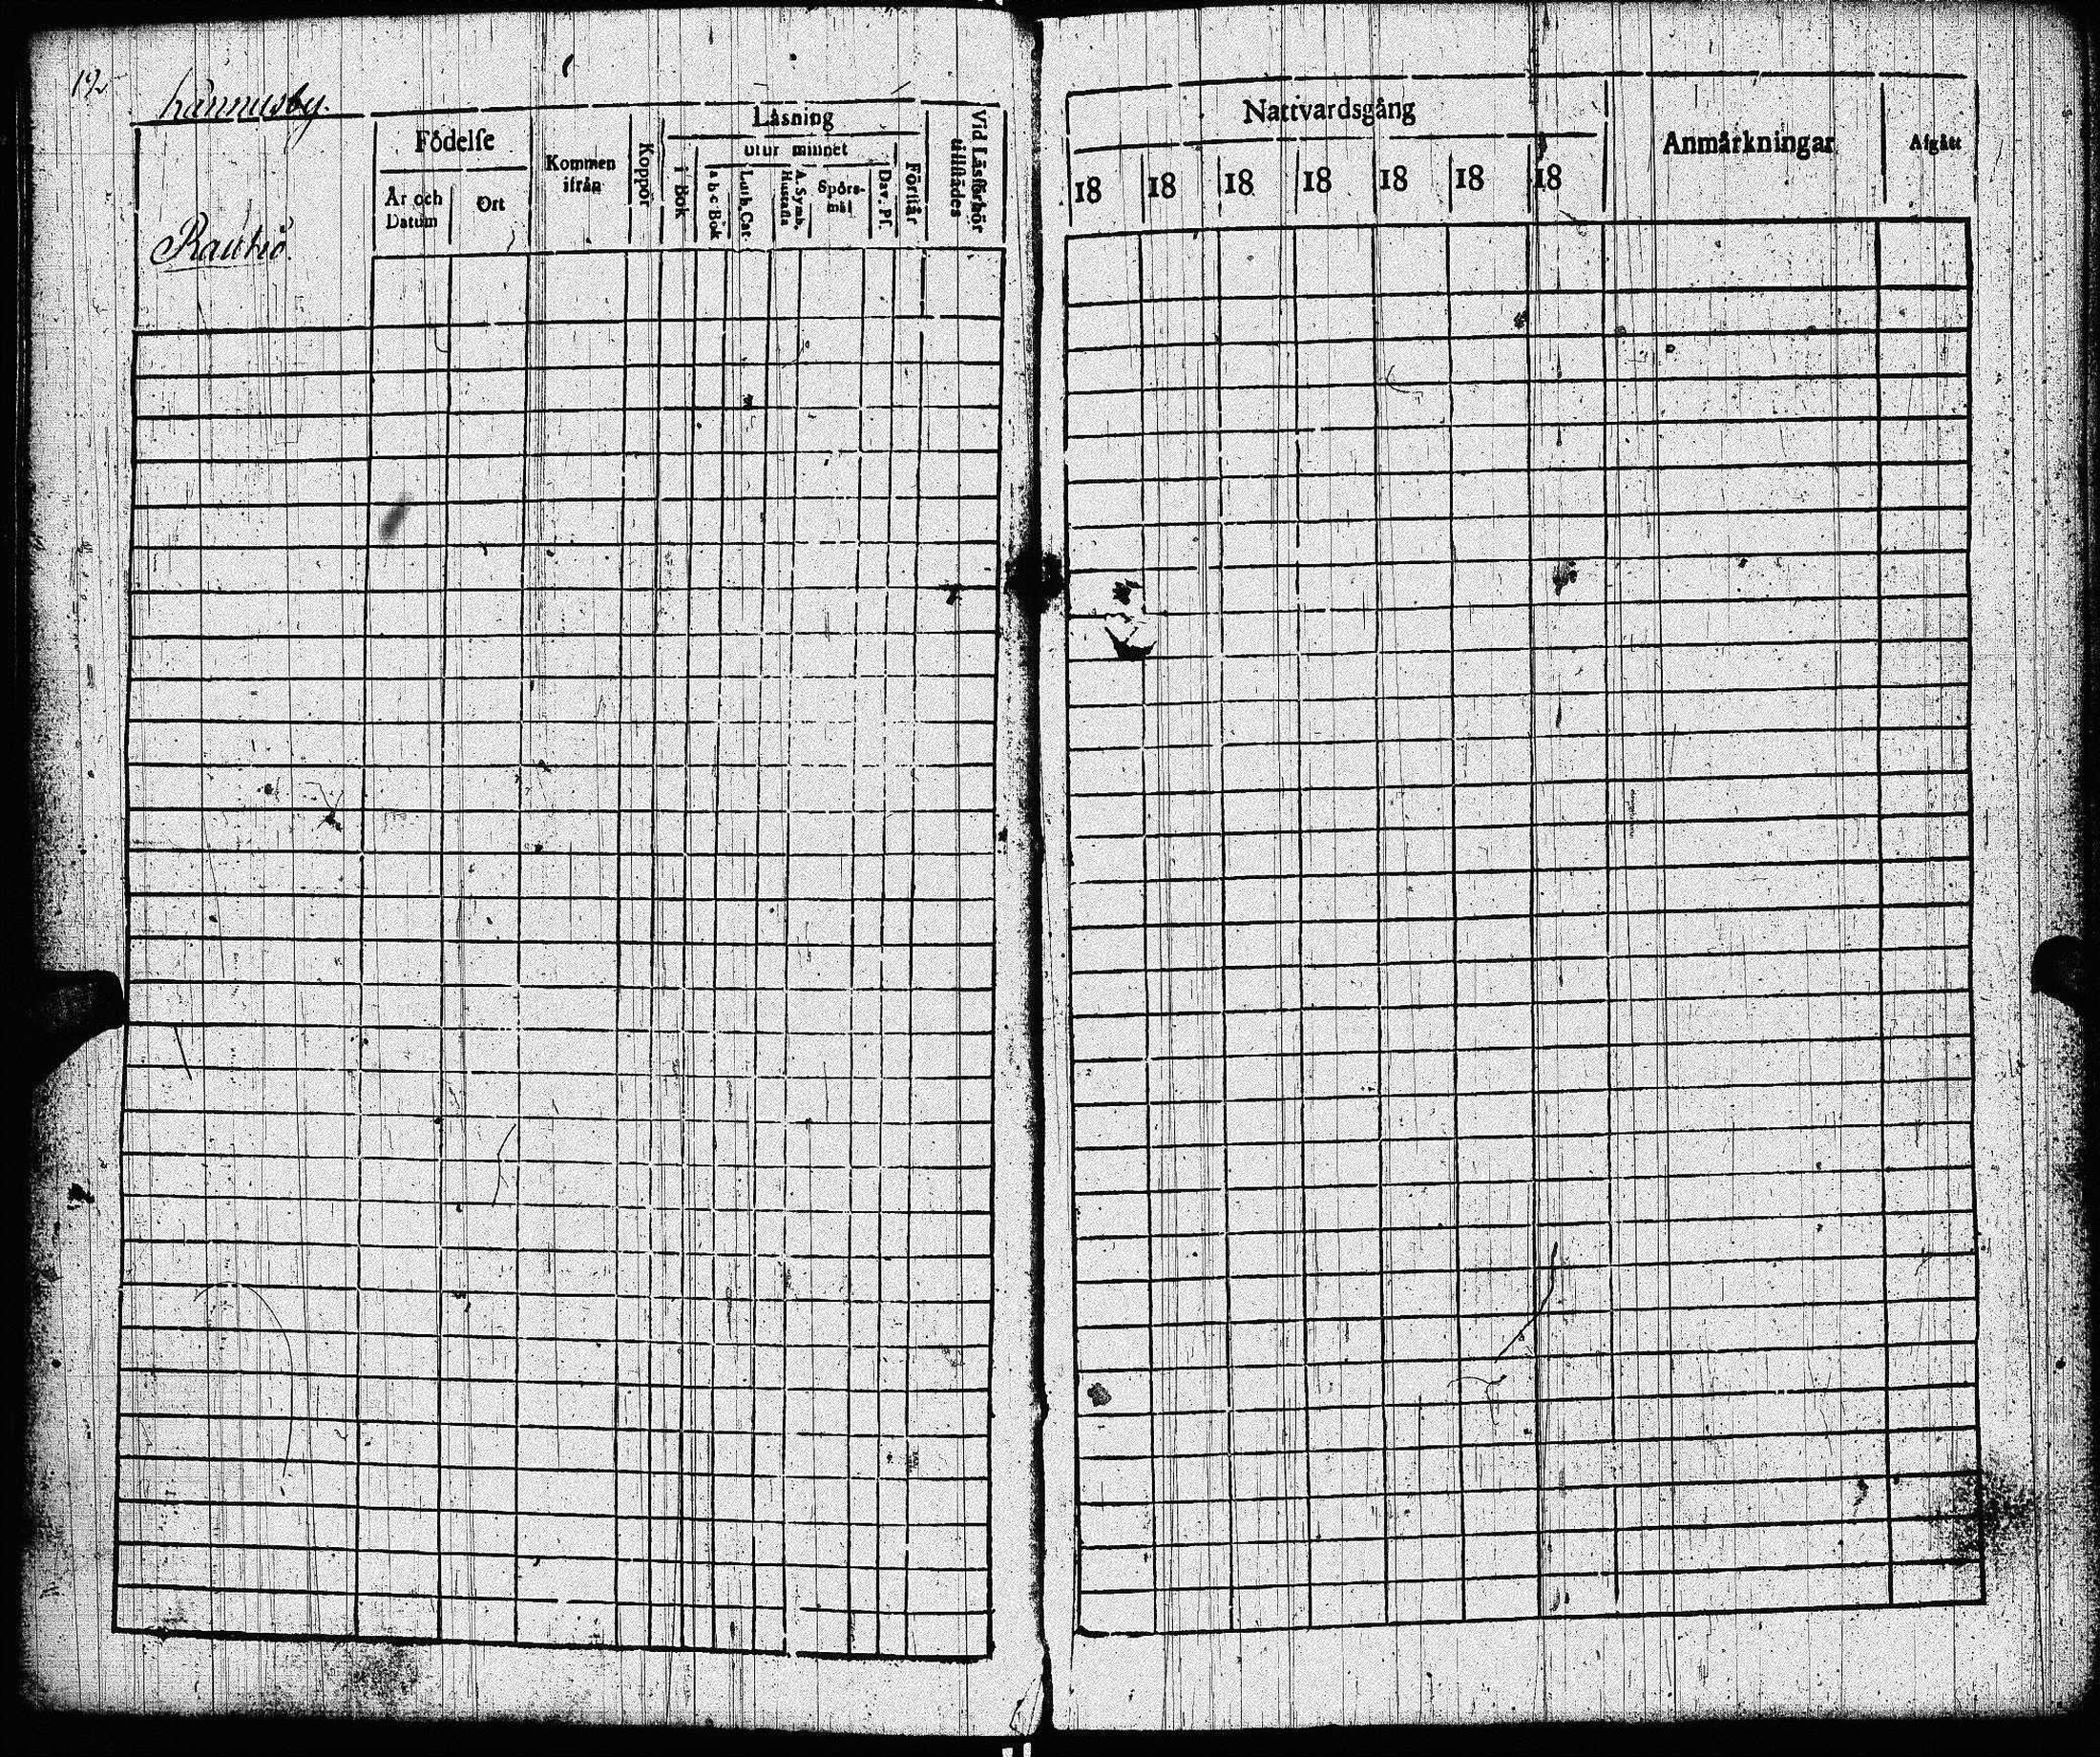 192
hännusby.
Rautio.
Födelse
År och Datum
Ort
Kommen ifrån
Koppor
Läsning
i Bok
utur minnet
a b c Bok
Luth. Cat.
A. Symb. Hustafla
Spörs-mål
Dav. Ps.
Förstår
Vid Läsförhör tillstädes
Nattvardsgång
18 18 18 18 18 18 18
Anmärkningar
Afgått